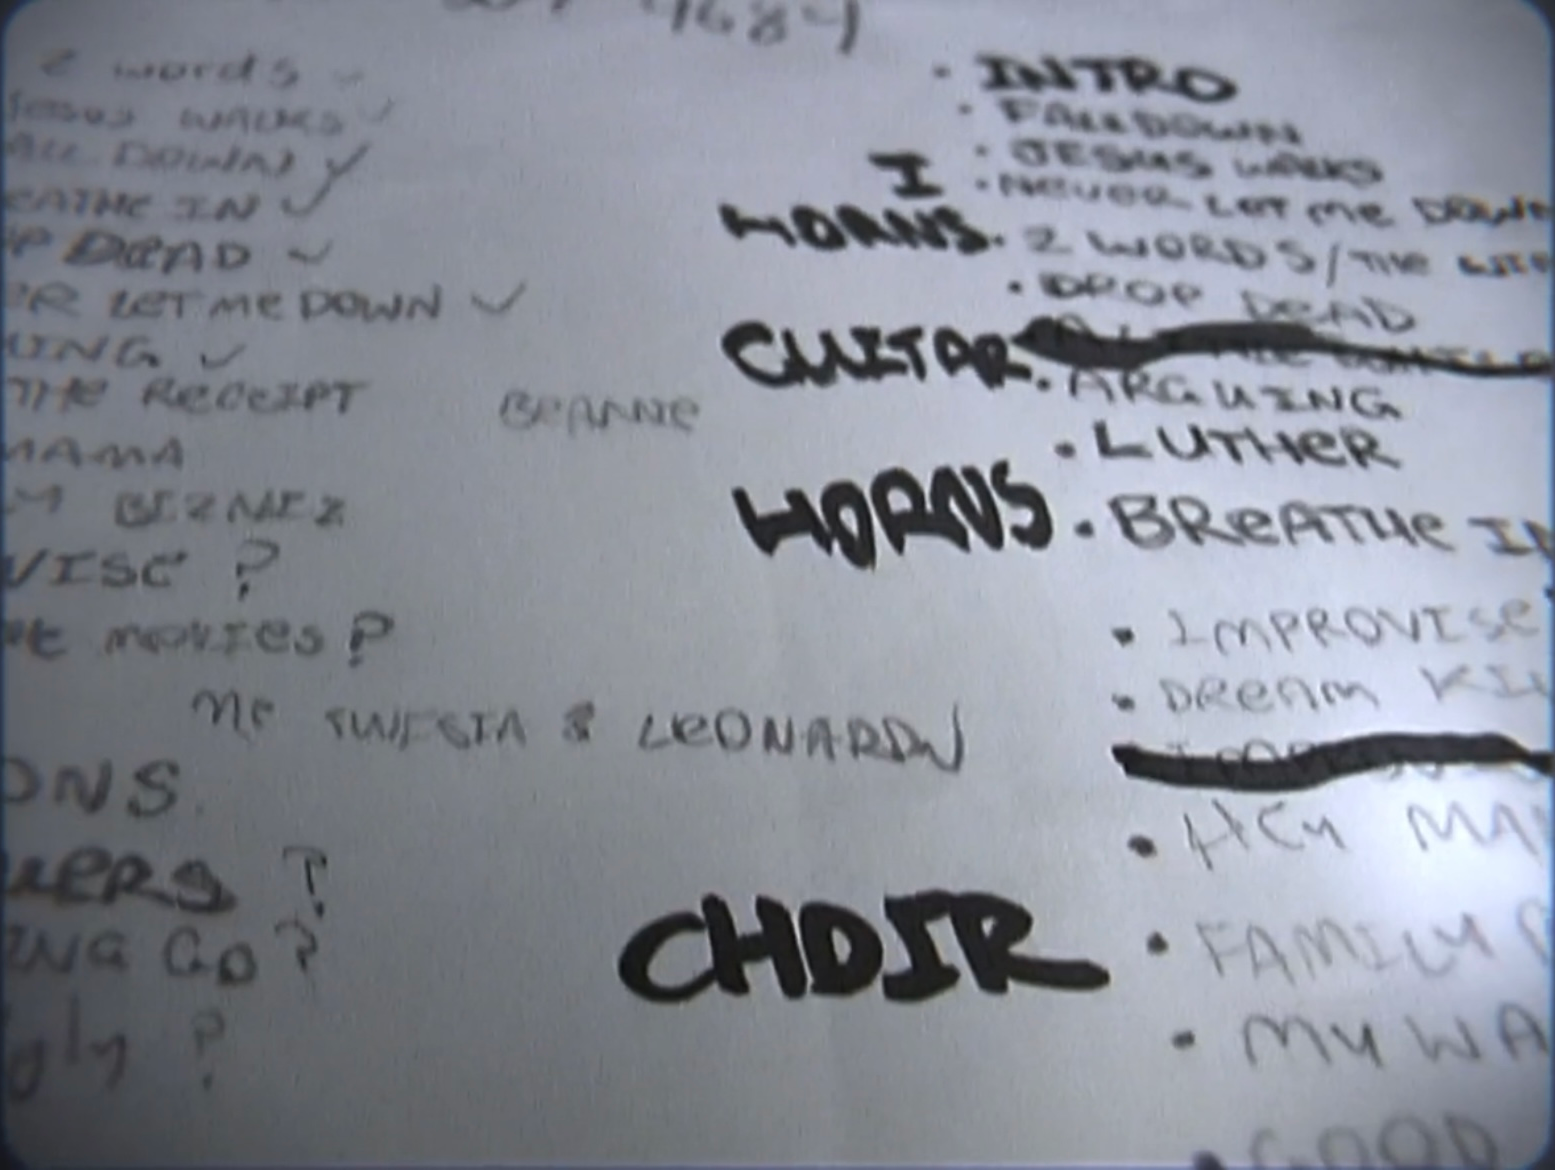 4684
2 words
Jesus WALKS ✓
ALL DOWN ✓
EATHE IN ✓
P DEAD ✓
ER LET me DOWN ✓
UING ✓
THE ReceIPT
BEANNE
MAMA
BIZNEZ
VISE ?
movies?
TWISTA & LEONARD
ONS.
uers ?
Go ?
gly ?
· INTRO
· FALL DOWN
· JESUS WALKS
I
· NeveR LET me DOWN
HORNS
· 2 WORDS/THE
· DROP DEAD
GUITAR
· ARGUING
· LUTHeR
HORNS
· BReATHe IN
· IMPROVISe
· DReam KIL
· HEY MA
CHOIR
· FAMILY
· MY WA
· GOOD